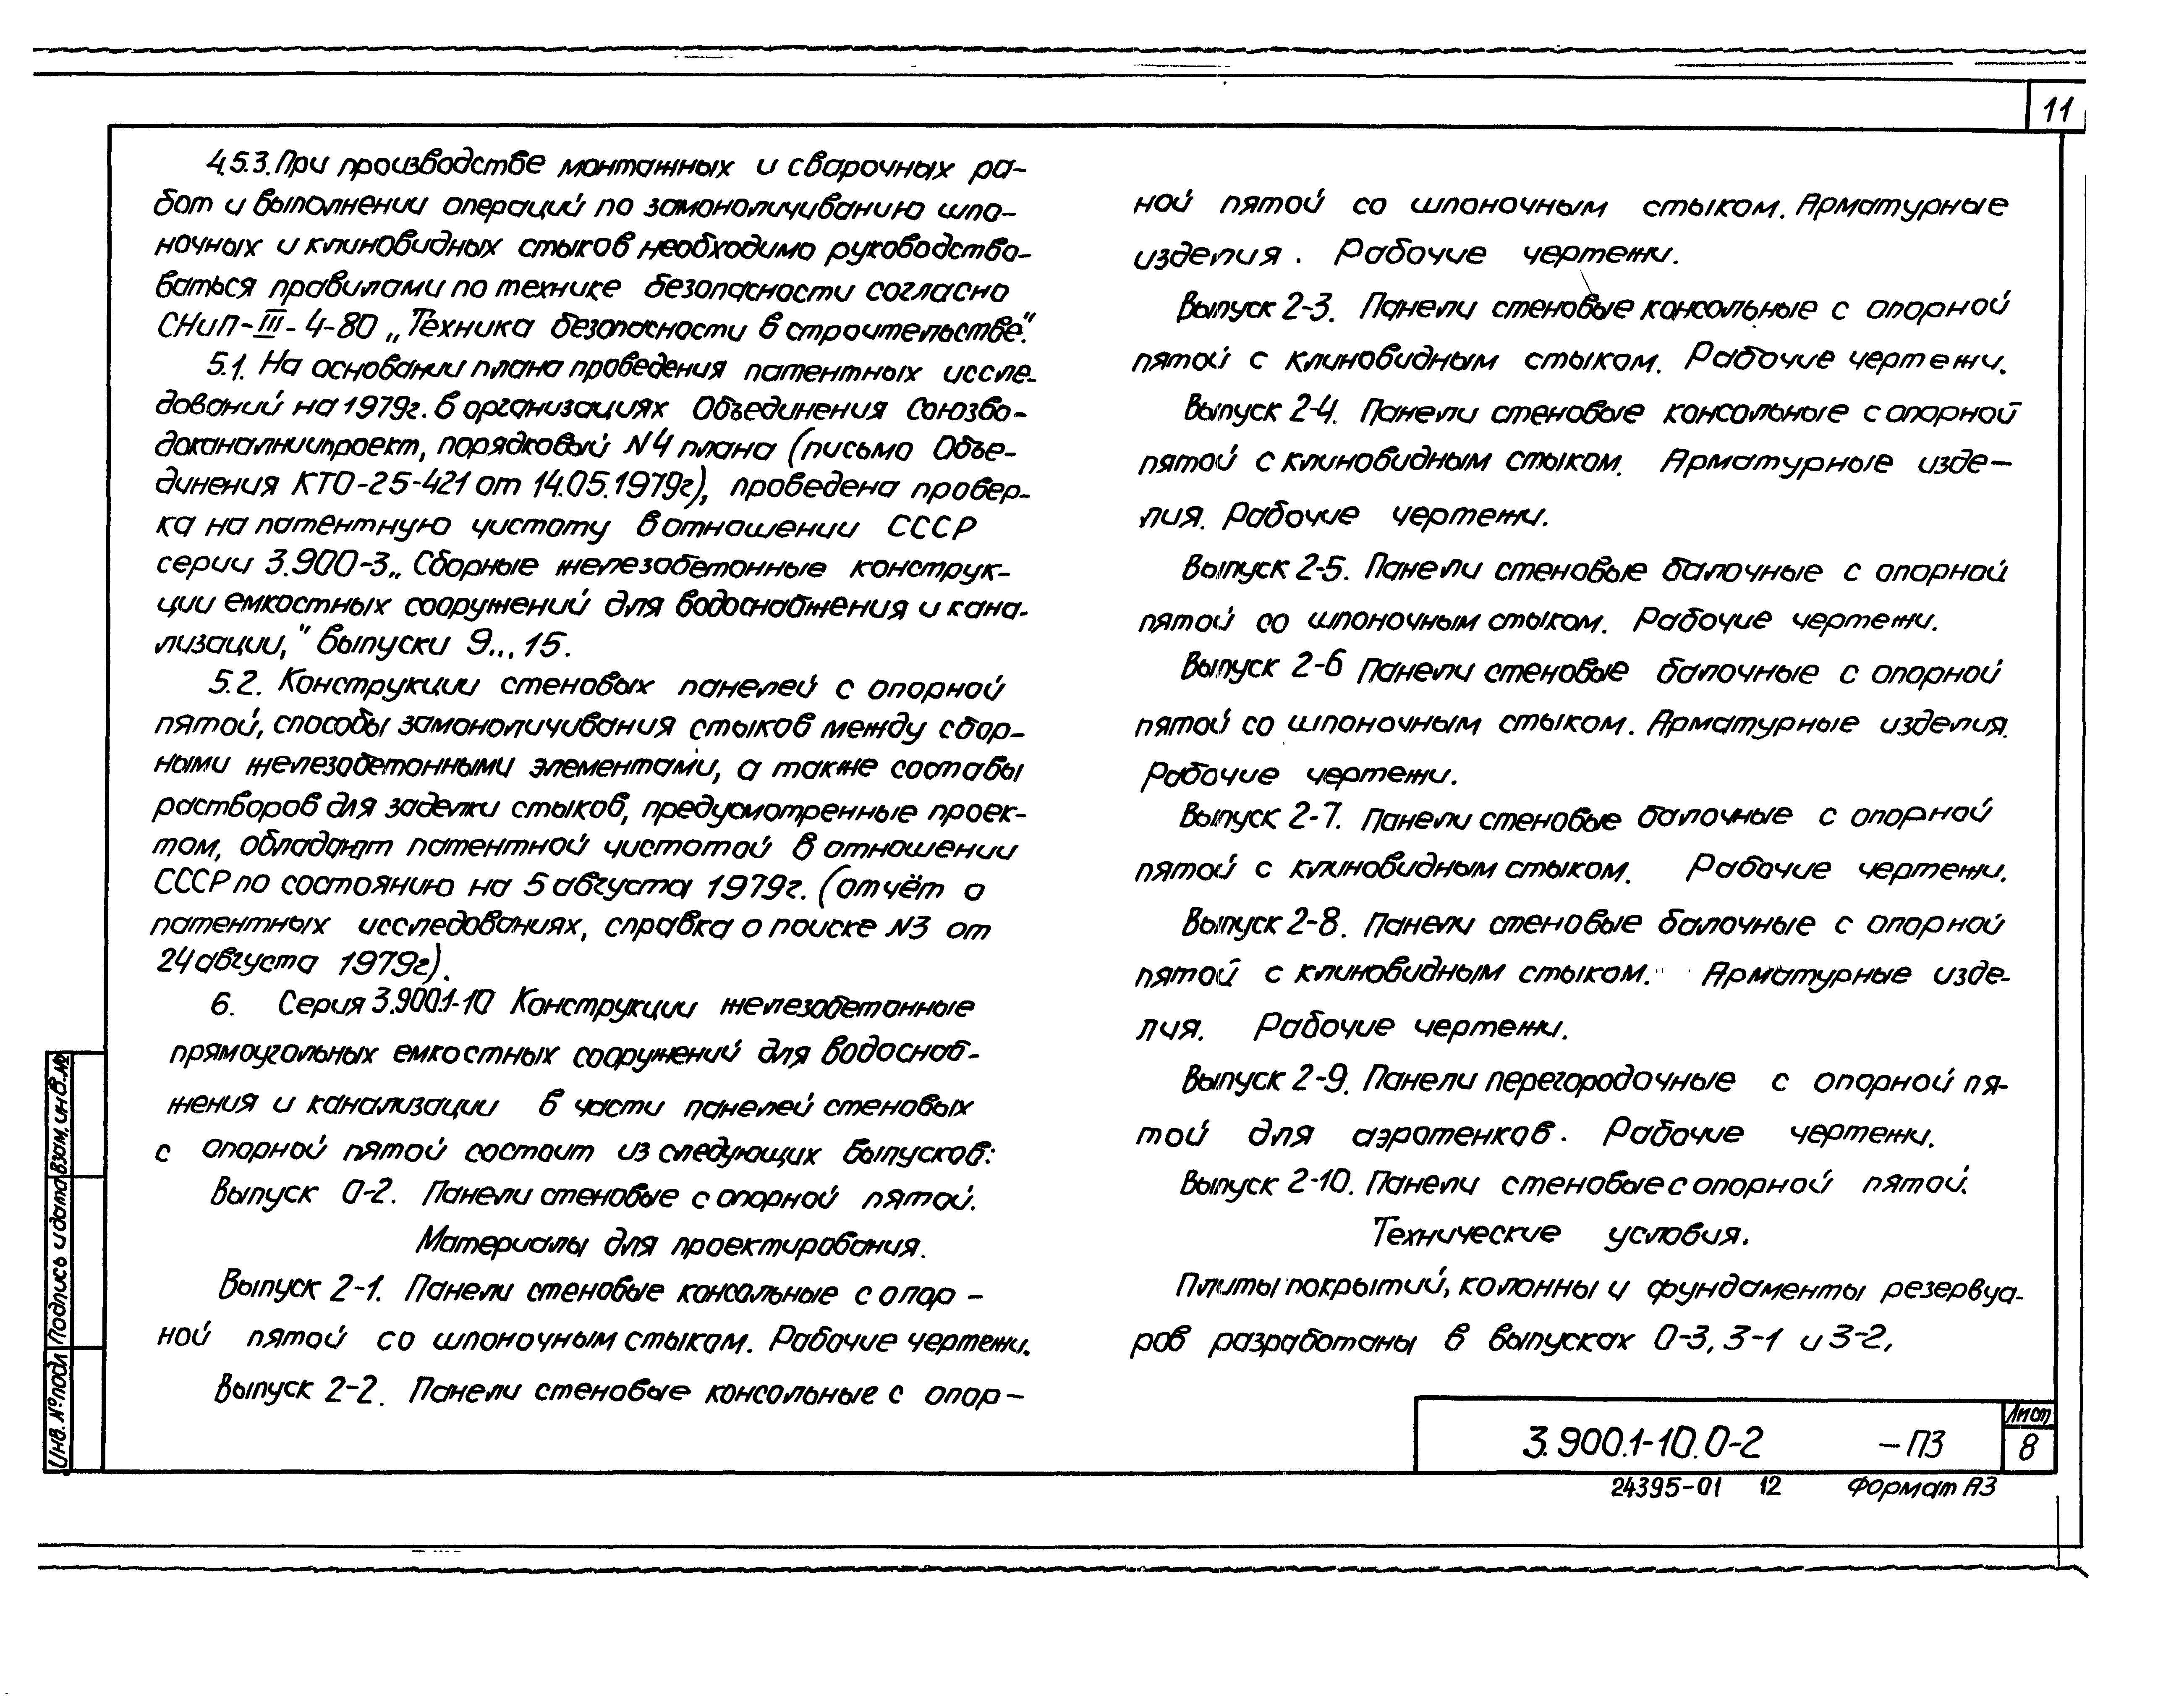 11
4.5.3. При производстве монтажных и сварочных ра-
бот и выполнении операций по замоноличиванию шпо-
ночных и клиновидных стыков необходимо руководство-
ваться правилами по технике безопасности согласно
СНиП-III-4-80 „Техника безопасности в строительстве".
5.1. На основании плана проведения патентных иссле-
дований на 1979г. в организациях Объединения Союзво-
доканалниипроект, порядковый N4 плана (письмо Объе-
динения КТО-25-421 от 14.05.1979г), проведена провер-
ка на патентную чистоту в отношении СССР
серии 3.900-3 „Сборные железобетонные конструк-
ции емкостных сооружений для водоснабжения и кана-
лизации," выпуски 9...15.
5.2. Конструкции стеновых панелей с опорной
пятой, способы замоноличивания стыков между сбор-
ными железобетонными элементами, а также составы
растворов для заделки стыков, предусмотренные проек-
том, обладают патентной чистотой в отношении
СССР по состоянию на 5 августа 1979г. (отчёт о
патентных исследованиях, справка о поиске N3 от
24 августа 1979г).
6. Серия 3.900.1-10 Конструкции железобетонные
прямоугольных емкостных сооружений для водоснаб-
жения и канализации в части панелей стеновых
с опорной пятой состоит из следующих выпусков:
Выпуск 0-2. Панели стеновые с опорной пятой.
Материалы для проектирования.
Выпуск 2-1. Панели стеновые консольные с опор-
ной пятой со шпоночным стыком. Рабочие чертежи.
Выпуск 2-2. Панели стеновые консольные с опор-
ной пятой со шпоночным стыком. Арматурные
изделия. Рабочие чертежи.
Выпуск 2-3. Панели стеновые консольные с опорной
пятой с клиновидным стыком. Рабочие чертежи.
Выпуск 2-4. Панели стеновые консольные с опорной
пятой с клиновидным стыком. Арматурные изде-
лия. Рабочие чертежи.
Выпуск 2-5. Панели стеновые балочные с опорной
пятой со шпоночным стыком. Рабочие чертежи.
Выпуск 2-6 Панели стеновые балочные с опорной
пятой со шпоночным стыком. Арматурные изделия.
Рабочие чертежи.
Выпуск 2-7. Панели стеновые балочные с опорной
пятой с клиновидным стыком. Рабочие чертежи.
Выпуск 2-8. Панели стеновые балочные с опорной
пятой с клиновидным стыком. Арматурные изде-
лия. Рабочие чертежи.
Выпуск 2-9. Панели перегородочные с опорной пя-
той для аэротенков. Рабочие чертежи.
Выпуск 2-10. Панели стеновые с опорной пятой.
Технические условия.
Плиты покрытий, колонны и фундаменты резервуа-
ров разработаны в выпусках 0-3, 3-1 и 3-2.
Инв. № подл
Подпись и дата
Взам. инв. №
3.900.1-10.0-2 -ПЗ
Лист
8
24395-01 12 Формат А3